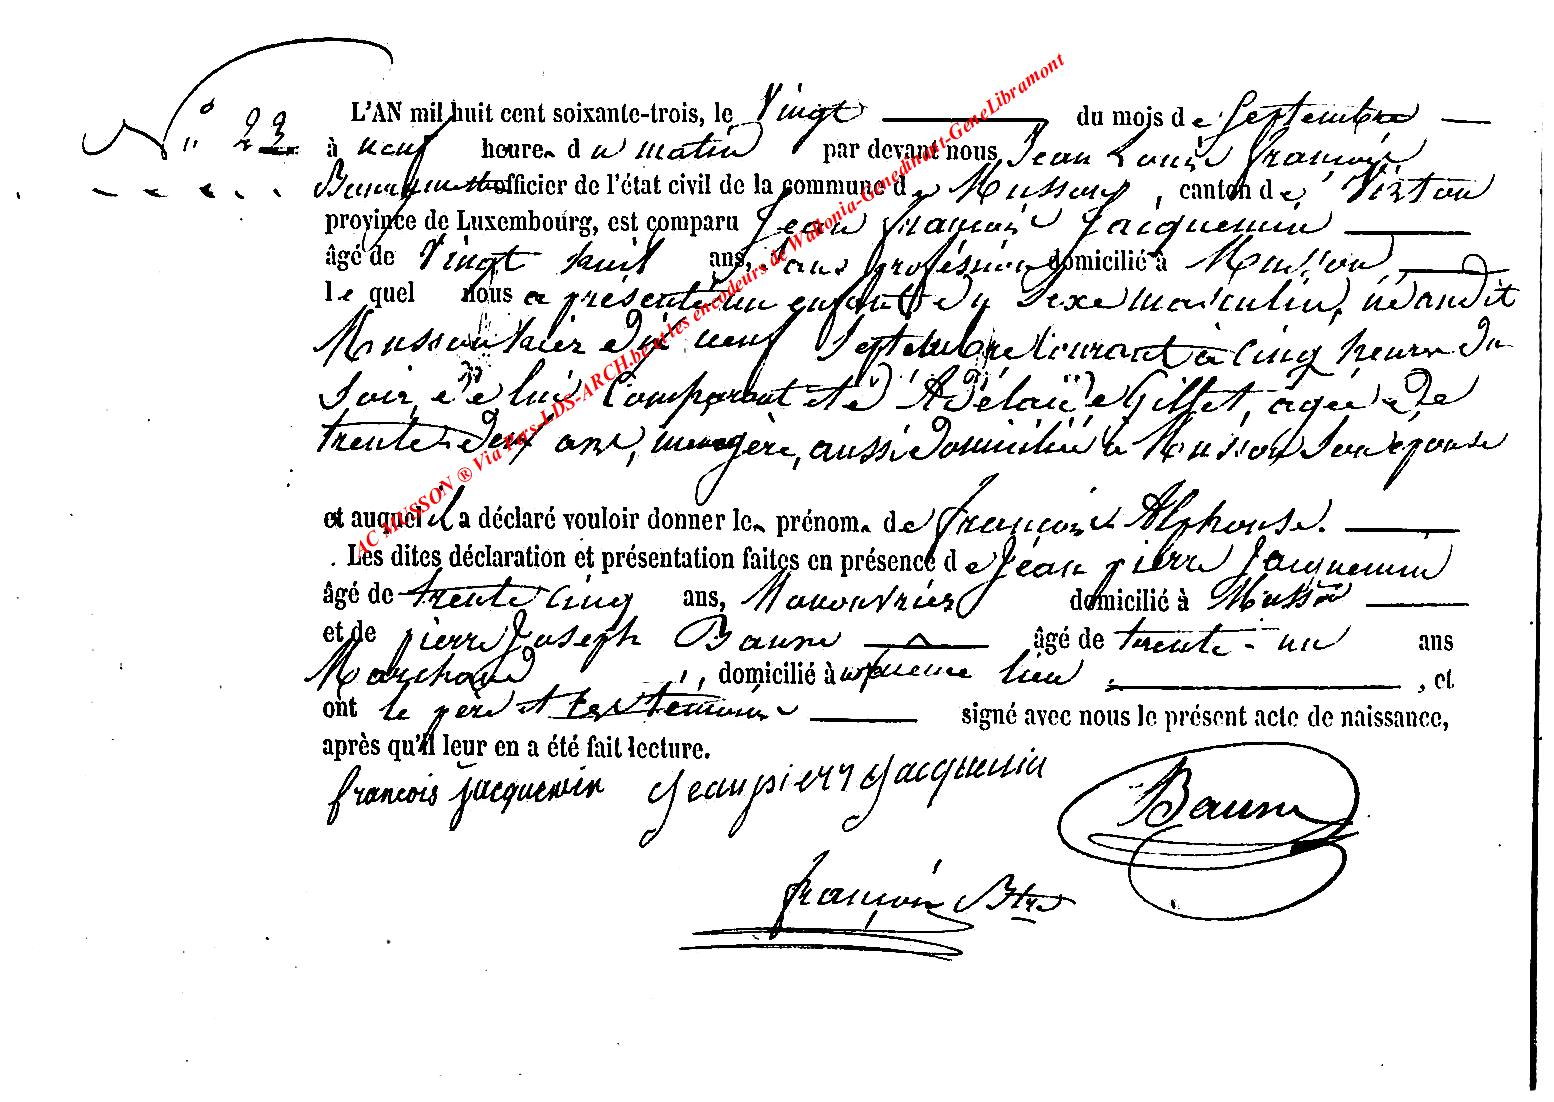 N° 23
L'AN mil huit cent soixante-trois, le Vingt du mois de Septembre
à neuf heures du matin par devant nous Jean Louis François
Bourgmestre officier de l'état civil de la commune de Musson, canton de Virton
province de Luxembourg, est comparu Jean François Jacquemin
âgé de Vingt huit ans, sans profession domicilié à Musson
lequel nous a présenté un enfant du Sexe masculin, né audit
Musson hier dix neuf Septembre courant à cinq heures du
soir, de lui Comparant et d'Adélaïde Gillet, agée de
trente-deux ans, menagère, aussi domiciliée à Musson Son épouse
et auquel il a déclaré vouloir donner les prénoms de François Alphonse.
Les dites déclaration et présentation faites en présence de Jean pierre Jacquemin
âgé de trente cinq ans, Manouvrier domicilié à Musson
et de pierre Joseph Baune âgé de trente-un ans
Marchand, domicilié à même lieu, et
ont le père et les témoins signé avec nous le présent acte de naissance,
après qu'il leur en a été fait lecture.
françois jacquemin Jeanpierre Jacquemin
Baune
François Btre
AC MUSSON ® Via Pars-LDS-ARCH.be et les encodeurs de Wallonia-Genedinant-GeneLibramont